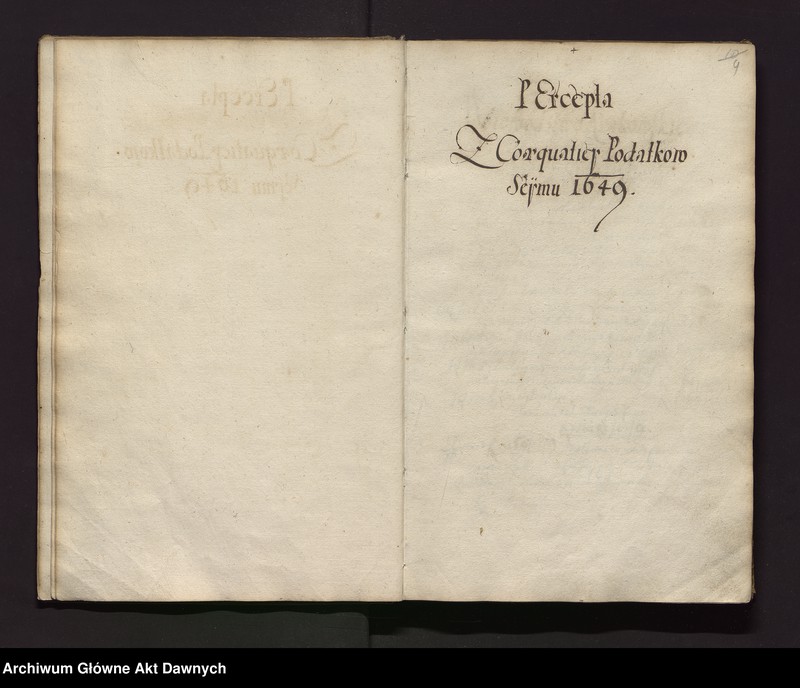 9
PErcepta
Z Coæquatiey Podatkow
Seÿmu 1649.
Archiwum Główne Akt Dawnych